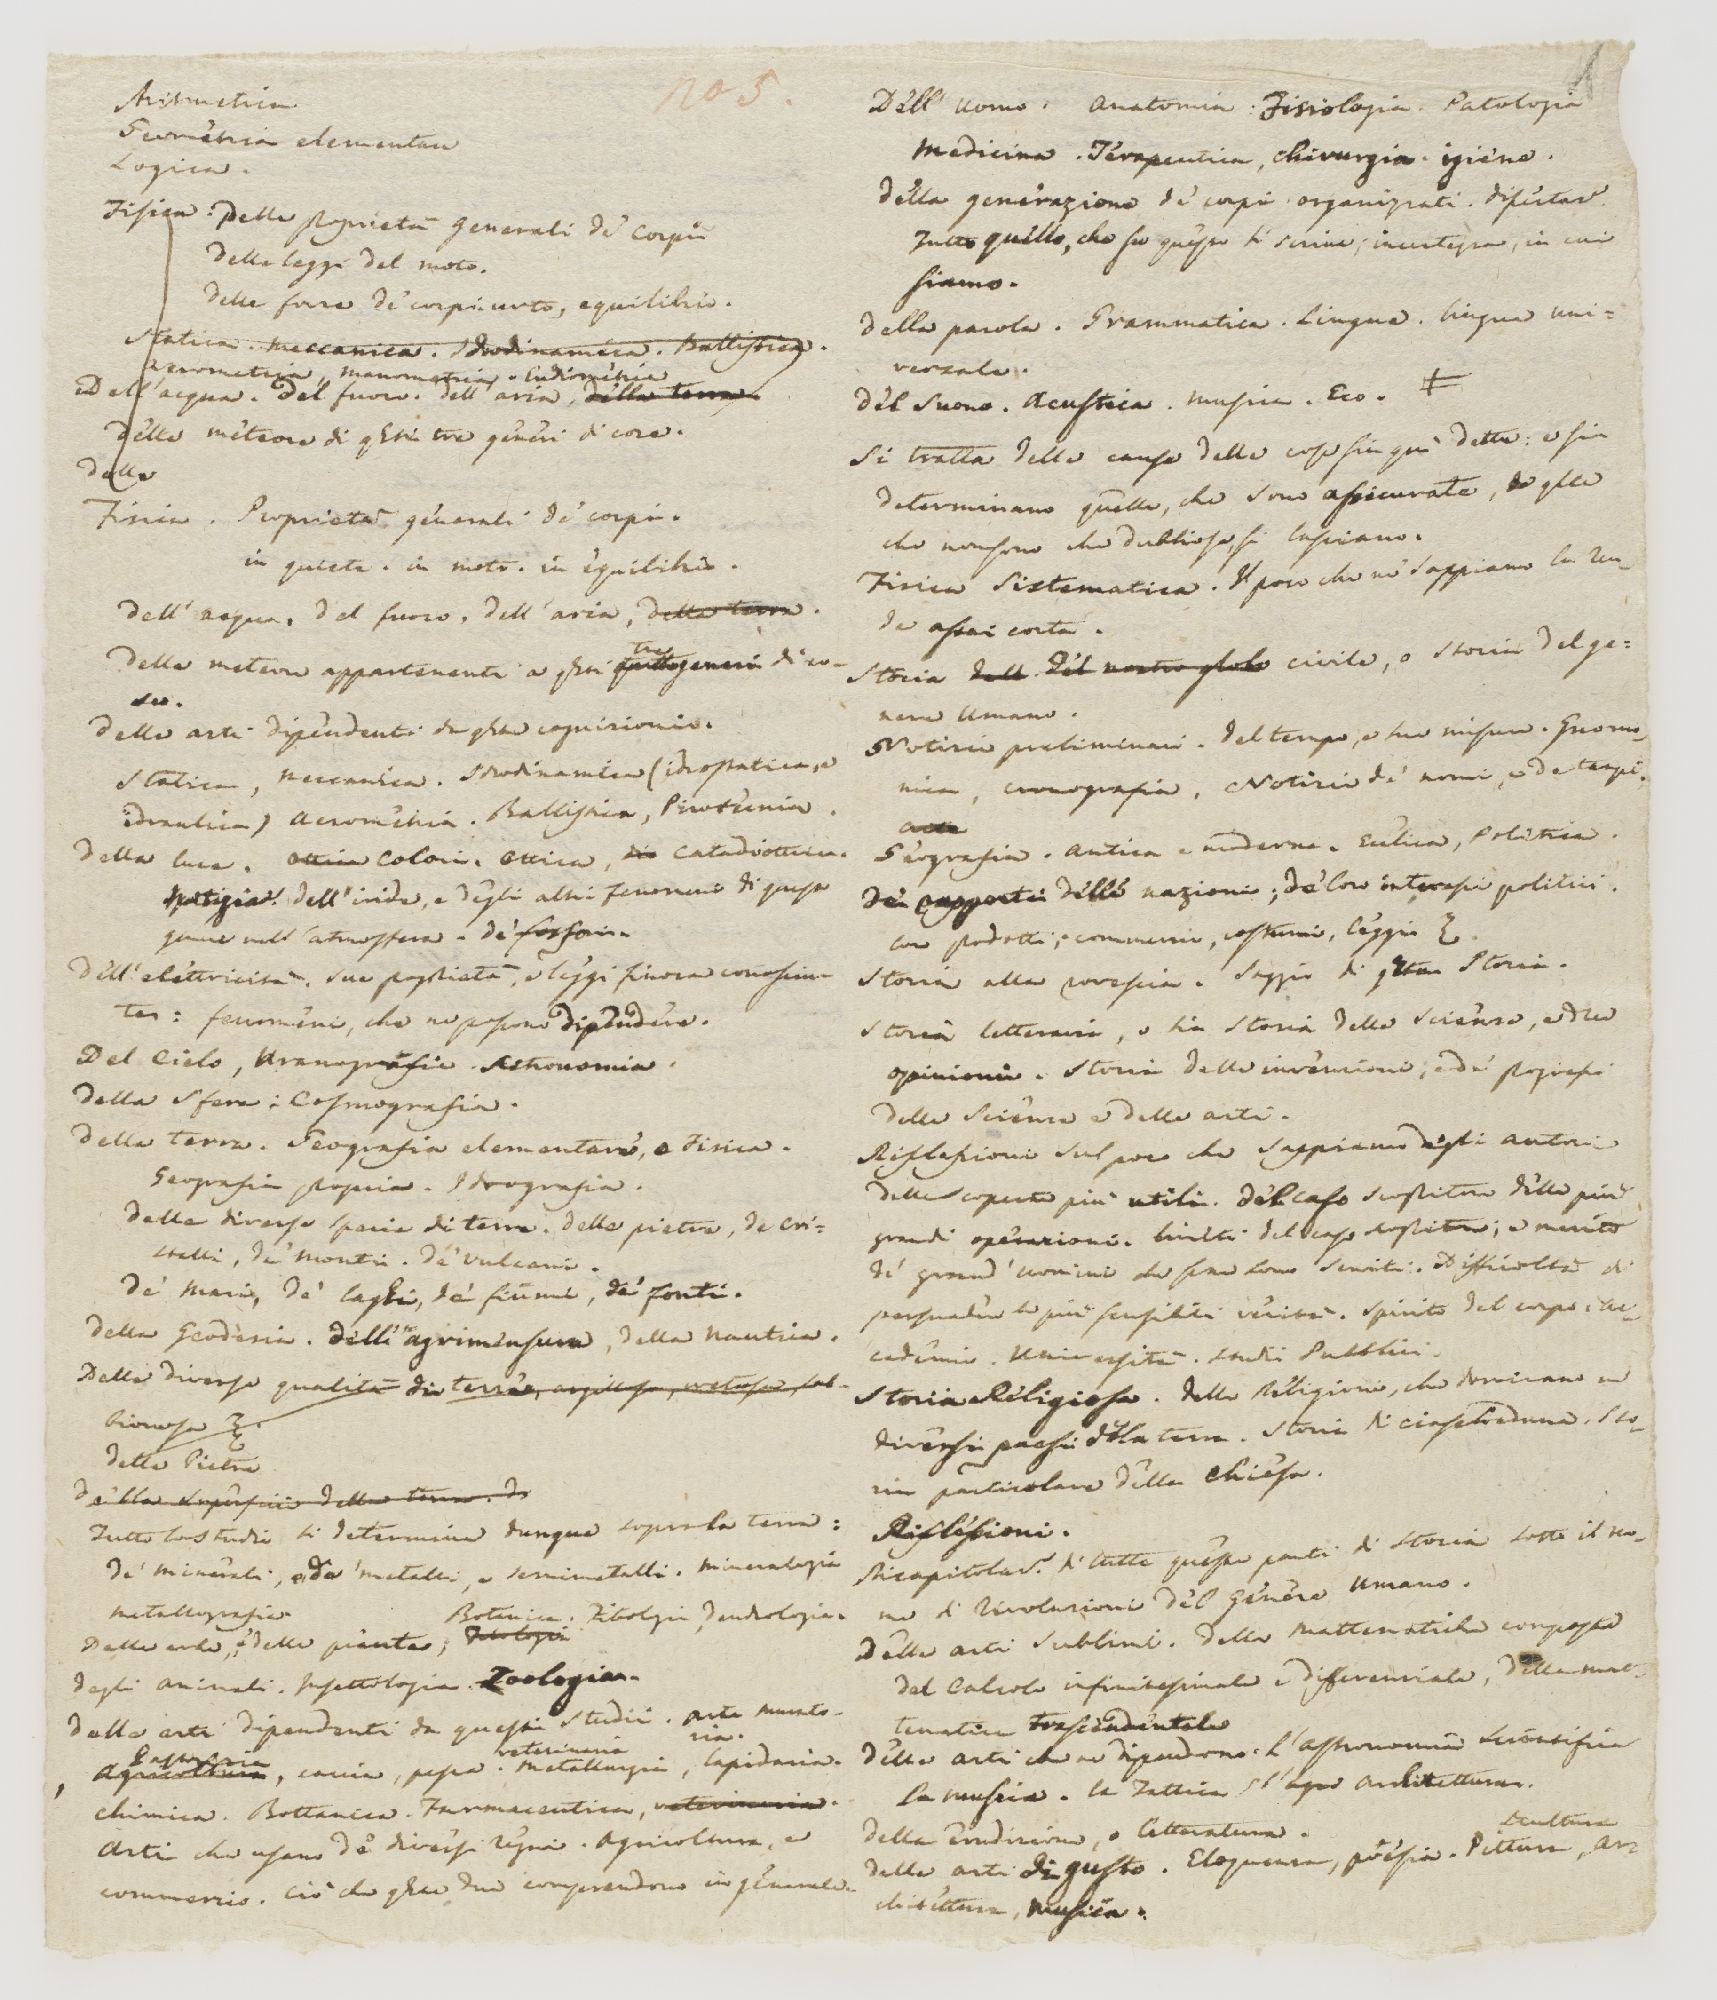 no 5.
Aritmetica
Geometria elementare
Logica.
Fisica: Delle proprietà generali de' corpi
Delle leggi del moto.
Delle forze de' corpi: urto, equilibrio.
Statica. Meccanica. Idrodinamica. Ballistica.
Aerometria, manometria, Eudiometria
Dell'acqua. Del fuoco. dell'aria, della terra.
Delle meteore di qsti tre generi di cose.
Delle
Fisica. Proprietà generali de' corpi.
in quiete. in moto. in equilibrio.
Dell'acqua, Del fuoco, dell'aria, della terra.
Delle meteore appartenenti a qsti tre generi di co-
se.
Delle arti dipendenti da qste cognizioni.
Statica, Meccanica. Idrodinamica (idrostatica, e
idraulica) Aerometria. Ballistica, Pirotecnia.
Della luce. Colori. Ottica, Catadiottrica.
Dell'iride, e degli altri fenomeni di questo
genere nell'atmosfera. De' fosfori.
Dell'elettricità, sue proprietà, e leggi finora conosciu-
te: fenomeni, che ne possono dipendere.
Del Cielo, Uranografia. Astronomia.
Della Sfera: Cosmografia.
Della terra. Geografia elementare, e Fisica.
Geografia propria. Idrografia.
Delle diverse specie di terra. Delle pietre, de' cri-
stalli, de' monti. De' Vulcani.
De' Mari, De' laghi, de' fiumi, de' fonti.
Della Geodesia. Dell'agrimensura, della Nautica.
Delle diverse qualità di terre, argillosa, cretosa, sab-
bionosa
Delle Pietre
Della superficie della terra. di
Tutto lo studio si determina dunque sopra la terra:
De' minerali, e de' metalli, e semimetalli. Mineralogia
Metallografia Botanica. Fitologia, Dendrologia.
Delle erbe, e delle piante, Fitologia
Degli animali. Insettologia. Zoologia.
Delle arti dipendenti da questi studii. Arte
ria.
Pastorizia veterinaria
Agricoltura, caccia, pesca. Metallurgia, lapidaria.
Chimica. Bottanica. Farmaceutica, veterinaria.
Arti che usano de' diversi regni. Agricoltura, e
commercio. Ciò che qste due comprendono in generale.
Dell'uomo: Anatomia. Fisiologia. Patologia
Medicina. Terapeutica, chirurgia. igiene.
Della generazione de' corpi organizzati.
Tutto quello, che su questo si scrive, incertezza, in cui
siamo.
Della parola. Grammatica. Lingue. Lingua uni=
versale.
Del Suono. Acustica. Musica. Eco.
Si tratta delle cause delle cose fin qui dette: e si
determinano quelle, che sono assicurate, qlle
che non sono che dubbiose, si lasciano.
Fisica Sistematica. Il poco che ne sappiamo la ren-
de assai corta.
Storia dell del nostro globo civile, o storia del ge=
nere Umano.
Notizie preliminari. Del tempo, e sue misure. Gnomo-
nica, cronografia. Notizie de' nomi, e de' tempi.
Geografia. Antica e moderna. Civile, Politica.
De' rapporti delle nazioni; de' loro interessi politici.
loro prodotti; commercio, costumi, leggi
Storia alla rovescia. Saggio di qsta Storia.
Storia letteraria, o sia Storia delle Scienze, e delle
opinioni. Storia delle invenzioni, e de' progressi
delle Scienze e delle arti.
Riflessioni sul poco che sappiamo degli autori
delle scoperte più utili. Del caso scopritore delle più
grandi operazioni. limiti del caso scopritore; e merito
de' grand'uomini che se ne sono serviti. Difficoltà di
persuadere le più sensibili verità. Spirito del corpo: Ac-
cademie. Università. Studi Pubblici.
Storia Religiosa. Delle Religioni, che dominano ne'
diversi paesi della terra. Storia di ciascheduna. Sto-
ria particolare della Chiesa.
Riflessioni.
di tutte queste parti di storia sotto il no-
me di Rivoluzioni del Genere Umano.
Delle arti sublimi. Della Mattematica composta
del Calcolo infinitesimale e differenziale, della mat-
tematica trascendentale
Delle arti che ne dipendono. L'astronomia scientifica
La musica. la Tattica l'architettura.
Della Erudizione, o letteratura.
Scultura
Delle arti di gusto. Eloquenza, poesia. Pittura, Ar=
chitettura, Musica.